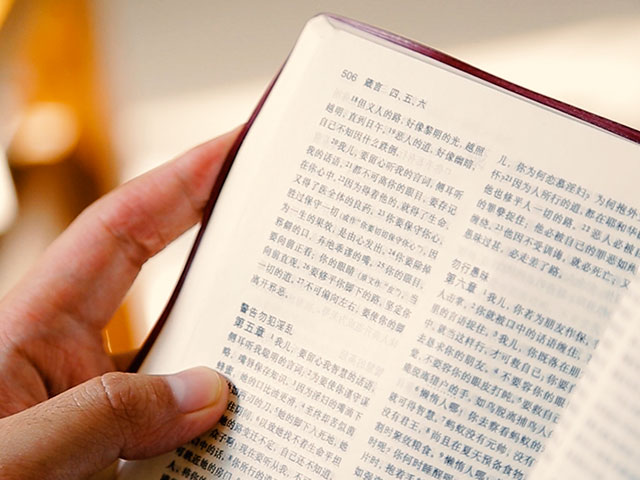 506 箴言 四,五,六
18但义人的路,好像黎明的光,越照
越明,直到日午。19恶人的道,好像幽暗,
自己不知因什么跌倒。
20我儿,要留心听我的言词,侧耳听
我的话语,21都不可离你的眼目,要存记
在你心中。22因为得着他的,就得了生命,
又得了医全体的良药。23你要保守你心,
胜过保守一切(或作“你要切切保守你心”),因
为一生的果效,是由心发出。24你要除掉
邪僻的口,弃绝乖谬的嘴。25你的眼目,
要向前正看;你的眼睛(原文作“皮”)当
向前直观。26要修平你脚下的路,坚定你
一切的道。27不可偏向左右,要使你的脚
离开邪恶。
警告勿犯淫乱
第五章 1我儿,要留心我智慧的话语,
侧耳听我聪明的言词;2为要使你谨守谋
略,嘴唇保存知识。3因为淫妇的嘴滴下
她的口比油更滑,4至终却苦似茵
刃的刀。5她的脚下入死地,她
6以致她找不着生命平坦
的路变迁不定,自己还不知道。
在要听从我,不
近她的房门
儿,你为何恋慕淫妇?为何抱外
怀?21因为人所行的道,都在耶和华
他也修平人一切的路。22恶人必被
的罪孽捉住,他必被自己的罪恶如绳
缠绕。23他因不受训诲,就必死亡;又
愚昧过甚,必走差了路。
勿行愚昧
第六章 1我儿,你若为朋友作保,
人击掌,2你就被口中的话语缠住,
的言语捉住。3我儿,你既落在朋
中,就当这样行,才可救自己:你要
去恳求你的朋友。4不要容你的眼
觉,不要容你的眼皮打盹。5要救自
鹿脱离猎户的手,如鸟脱离捕鸟人
6懒惰人哪,你去察看蚂蚁的
就可得智慧。7蚂蚁没有元帅,没有
没有君王,8尚且在夏天预备食物
时聚敛粮食。9懒惰人哪,
时呢?你何时睡醒呢
片时,抱着手